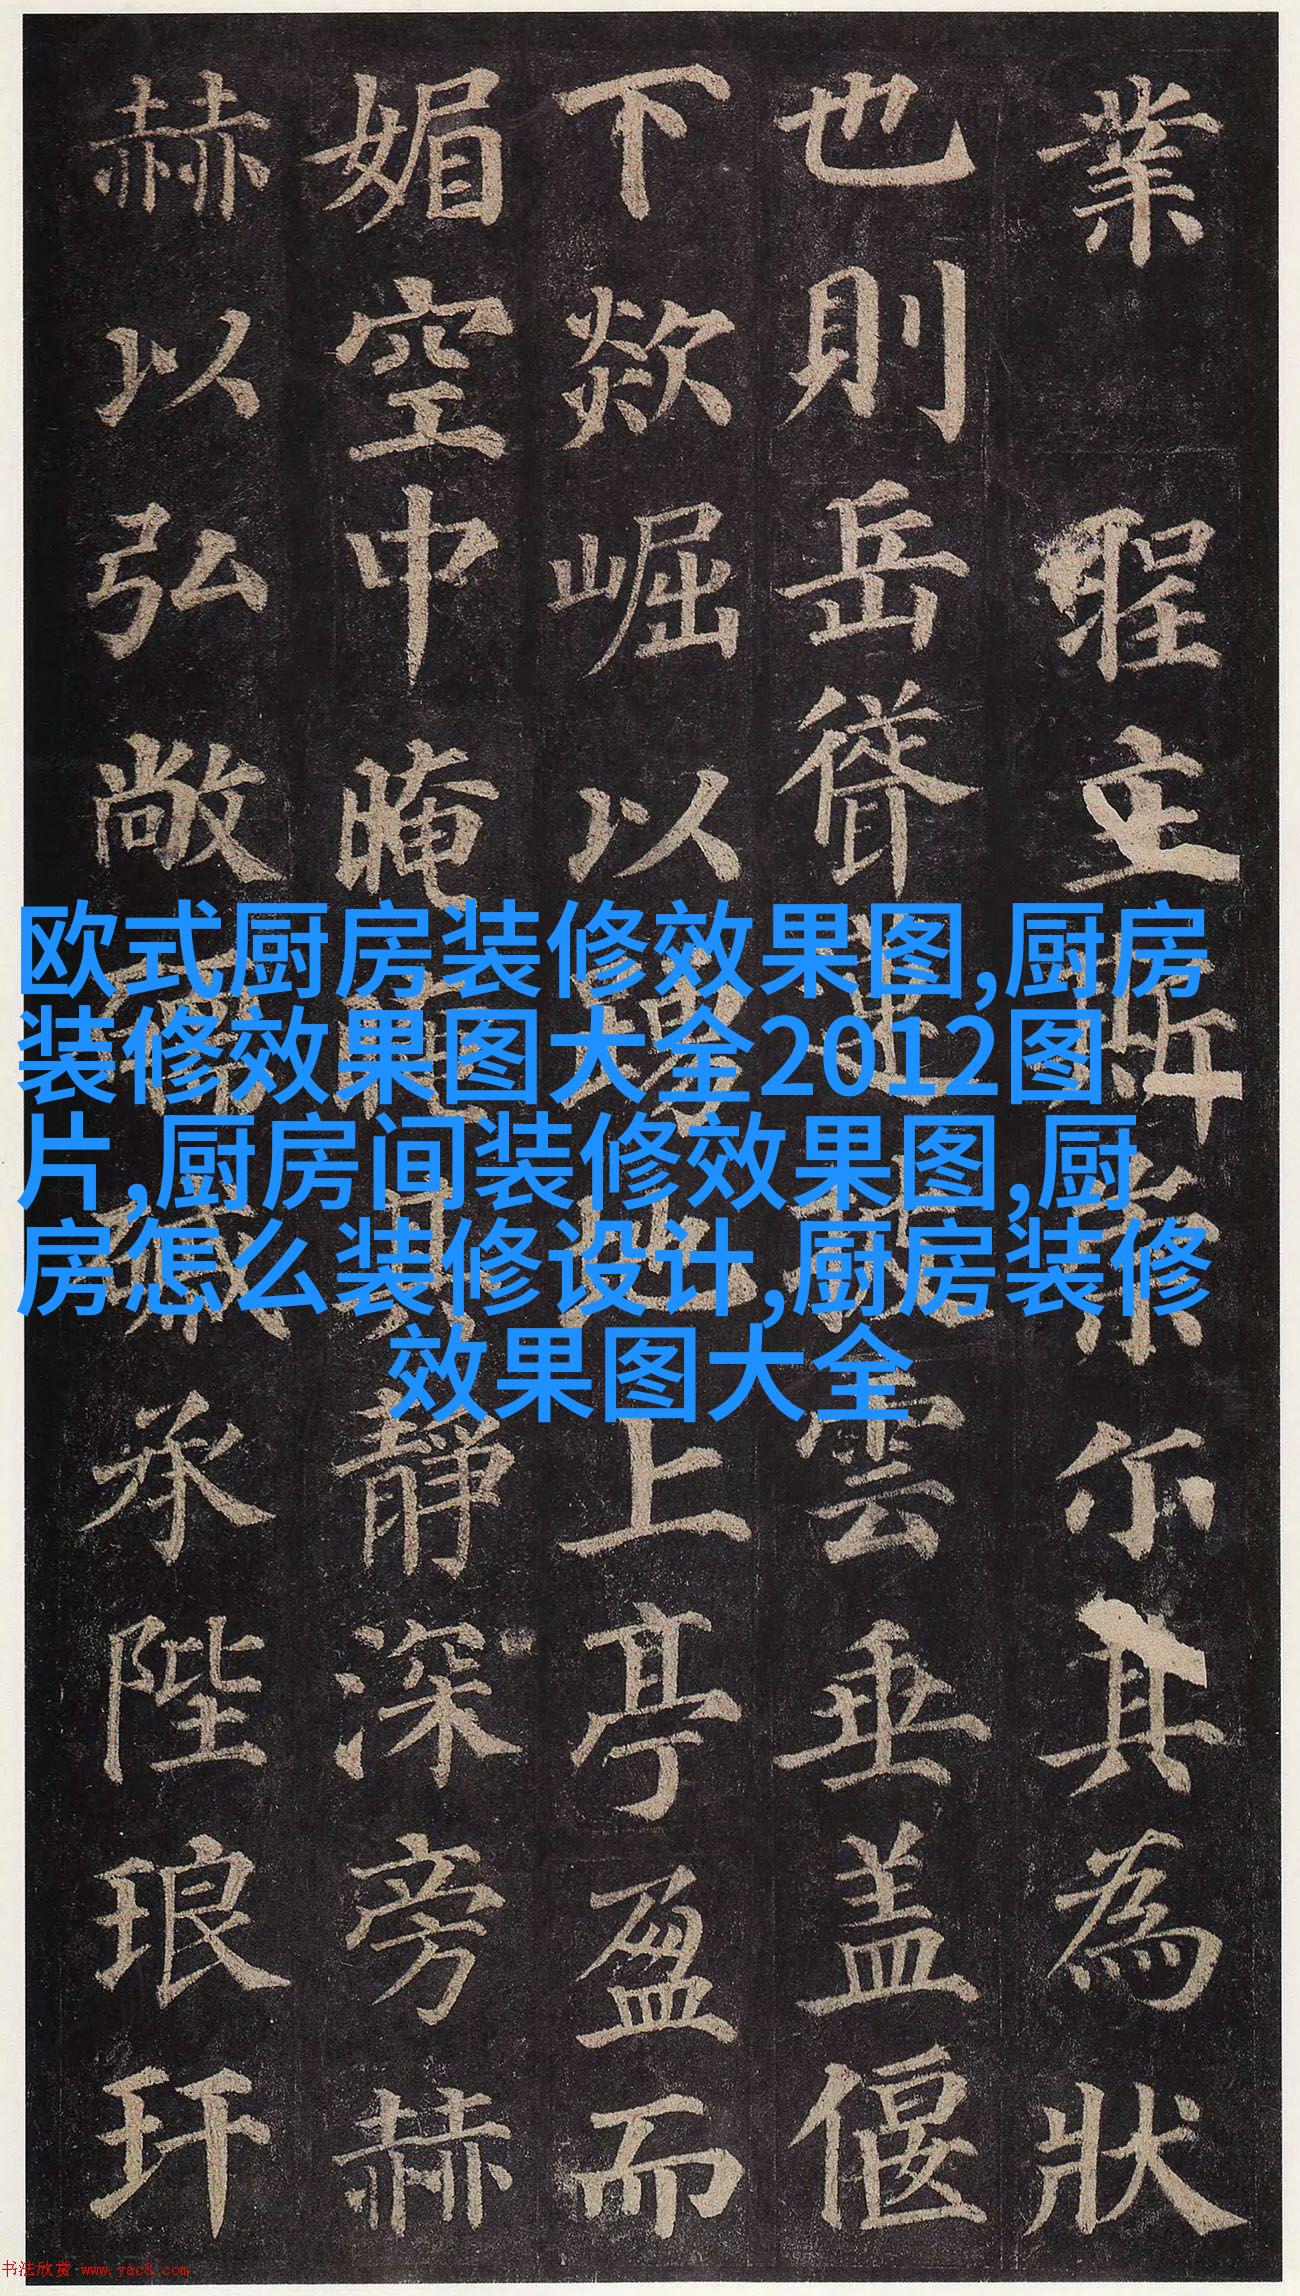 業聖主斯崇尒其為狀
也則岳聳蓮披雲垂蓋偃
下欻崛以踊地上亭盈而
媚空中晻晻其靜深旁赫
赫以弘敞礝磩承陛琅玕
欧式厨房装修效果图,厨房
装修效果图大全2012图
片,厨房间装修效果图,厨
房怎么装修设计,厨房装修
效果图大全
书法欣赏 www.yac8.com